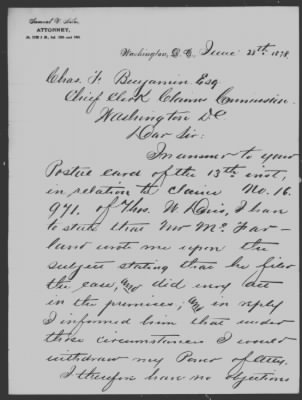 Samuel V. Niles,
ATTORNEY,
Washington, D. C., June 28th, 1878.
Chas. F. Benjamin Esq
Chief Clerk Claims Commission.
Washington D C
Dear Sir:
In answer to your
Postal card of the 13th inst,
in relation to claim No. 16.
971. of Thos. W. I have
to state that Mr Mc Far-
land wrote me upon the
subject stating that he filed
the case, and did every act
in the premises; and in reply
I informed him that under
those circumstances I would
withdraw my Power of Atty.
I therefore have no objections